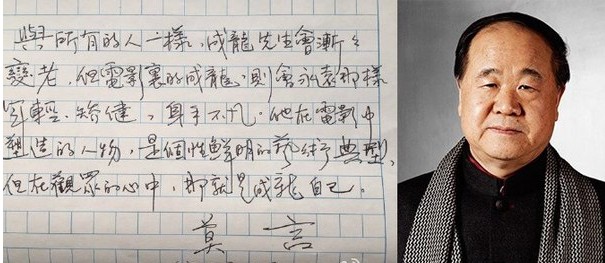 與所有的人一樣，成龍先生會漸々
變老，但電影裏的成龍，則會永遠那樣
年輕、矯健，身手不凡。他在電影中
塑造的人物，是個性鮮明的藝術典型，
但在觀眾的心中，那就是成龍自己。
莫言